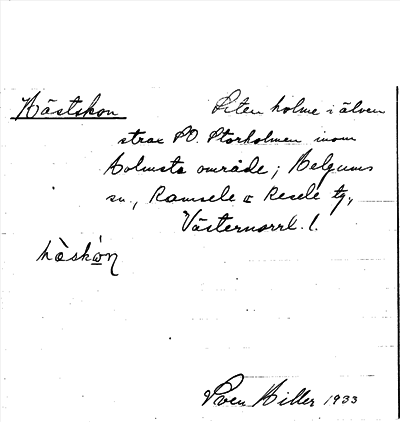 Hästskon Liten holme i älven
strax SO. Storholmen inom
Holmsta område; Helgums
sn., Ramsele o Resele tg.,
Västernorrl. l.
hàskɷ́ɳ
Sven Hiller 1933